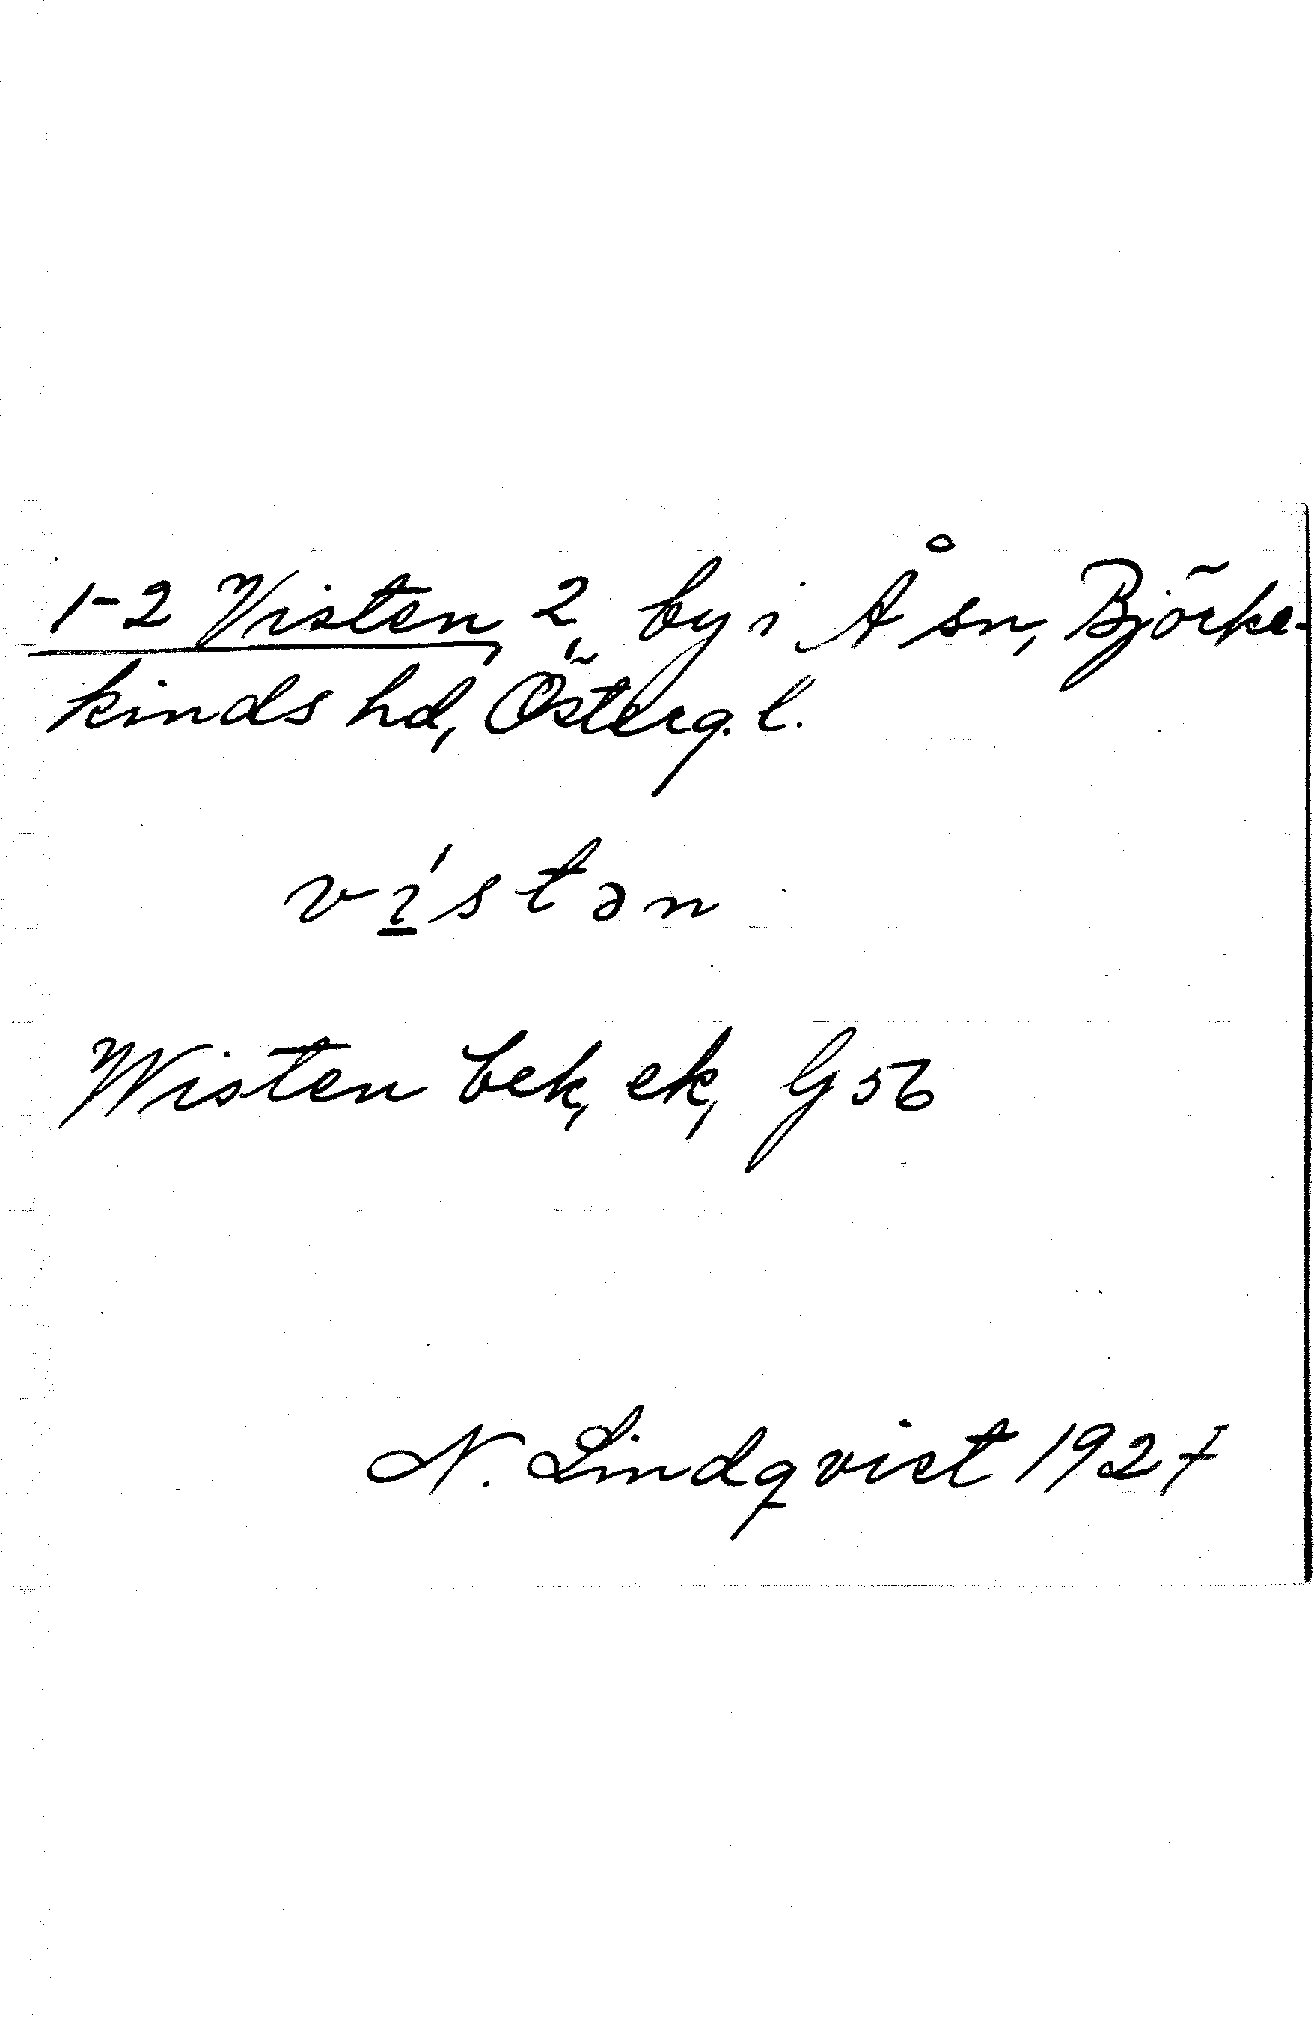 1-2 Visten, 2, by i Å sn, Björke-
kinds hd, Österg. l.
vístən
Wisten bek, ek, G 56
N. Lindqvist 1927